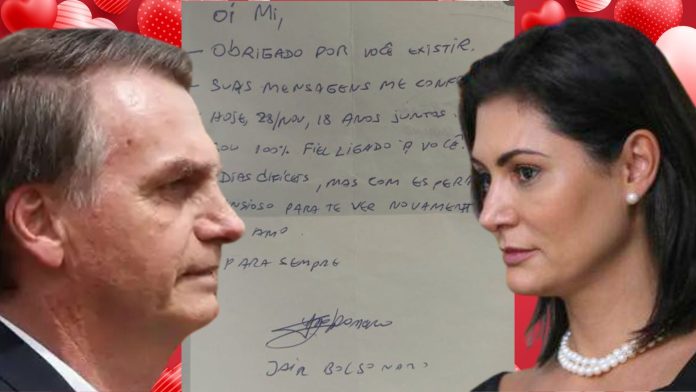 Oi Mi,
- OBRIGADO POR VOCÊ EXISTIR.
- SUAS MENSAGENS ME
HOJE, 28/NOV, 18 ANOS JUNTOS.
100% FIEL LIGADO A VOCÊ.
DIAS DIFÍCEIS, MAS COM
PARA TE VER
AMO.
PARA SEMPRE
JAIR BOLSONARO